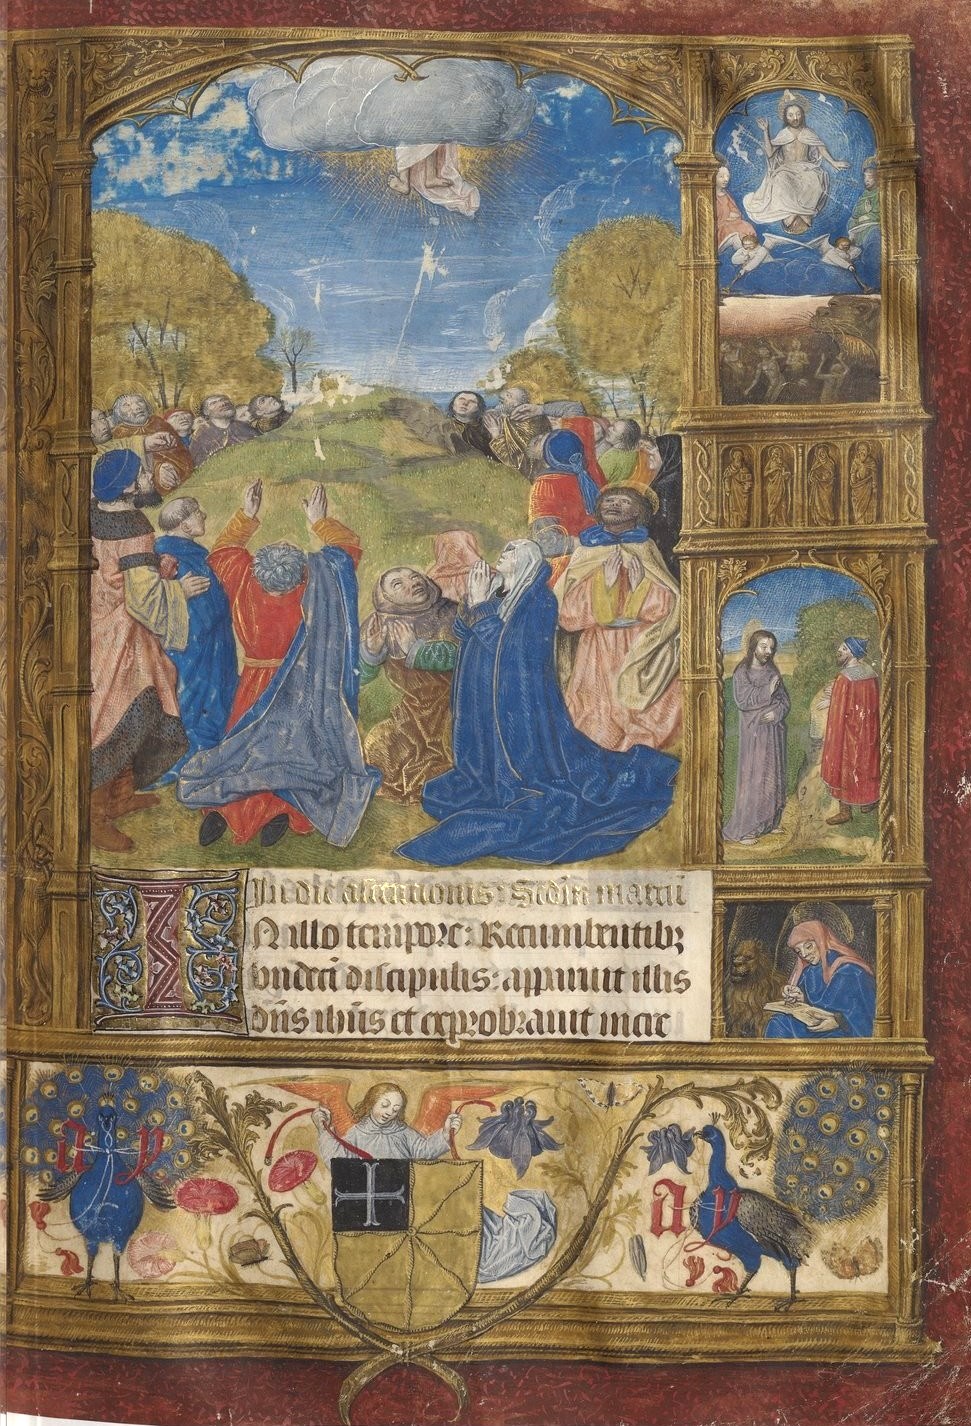 In die ascentionis: Scdm marcū
IN illo tempore: Recumbentibꝫ
vndecī discipulis: apparuit illis
dn̄s ihūs et exprobrauit incre
a y
a y